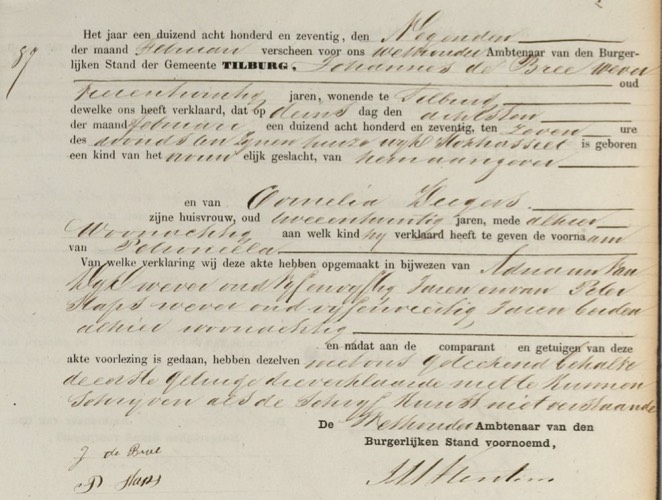 Het jaar een duizend acht honderd en zeventig, den Negenden
89 der maand Februari verscheen voor ons Wethouder Ambtenaar van den Burger-
lijken Stand der Gemeente TILBURG, Johannes de Bree wever
oud
jaren, wonende te Tilburg
dewelke ons heeft verklaard, dat op dag den achtsten
der maand februari een duizend acht honderd en zeventig, ten zeven ure
des avonds ten zijnen huize wijk Korhasselt is geboren
een kind van het vrouwelijk geslacht, van hem aangever
en van Cornelia
zijne huisvrouw, oud tweeentwintig jaren, mede alhier
Woonachtig aan welk kind hij verklaard heeft te geven de voornaam
van Petronella
Van welke verklaring wij deze akte hebben opgemaakt in bijwezen van Adriaan van
wever oud vijfenvijftig Jaren en van Peter
Staps wever oud vijfenveertig Jaren beiden
alhier woonachtig
en nadat aan de comparant en getuigen van deze
akte voorlezing is gedaan, hebben dezelven met ons geteekend behalve
de eerste getuige die verklaarde niet te kunnen
Schrijven als de Schrijf Kunst niet verstaande
De Wethouder Ambtenaar van den
Burgerlijken Stand voornoemd,
J de Bree
P Staps